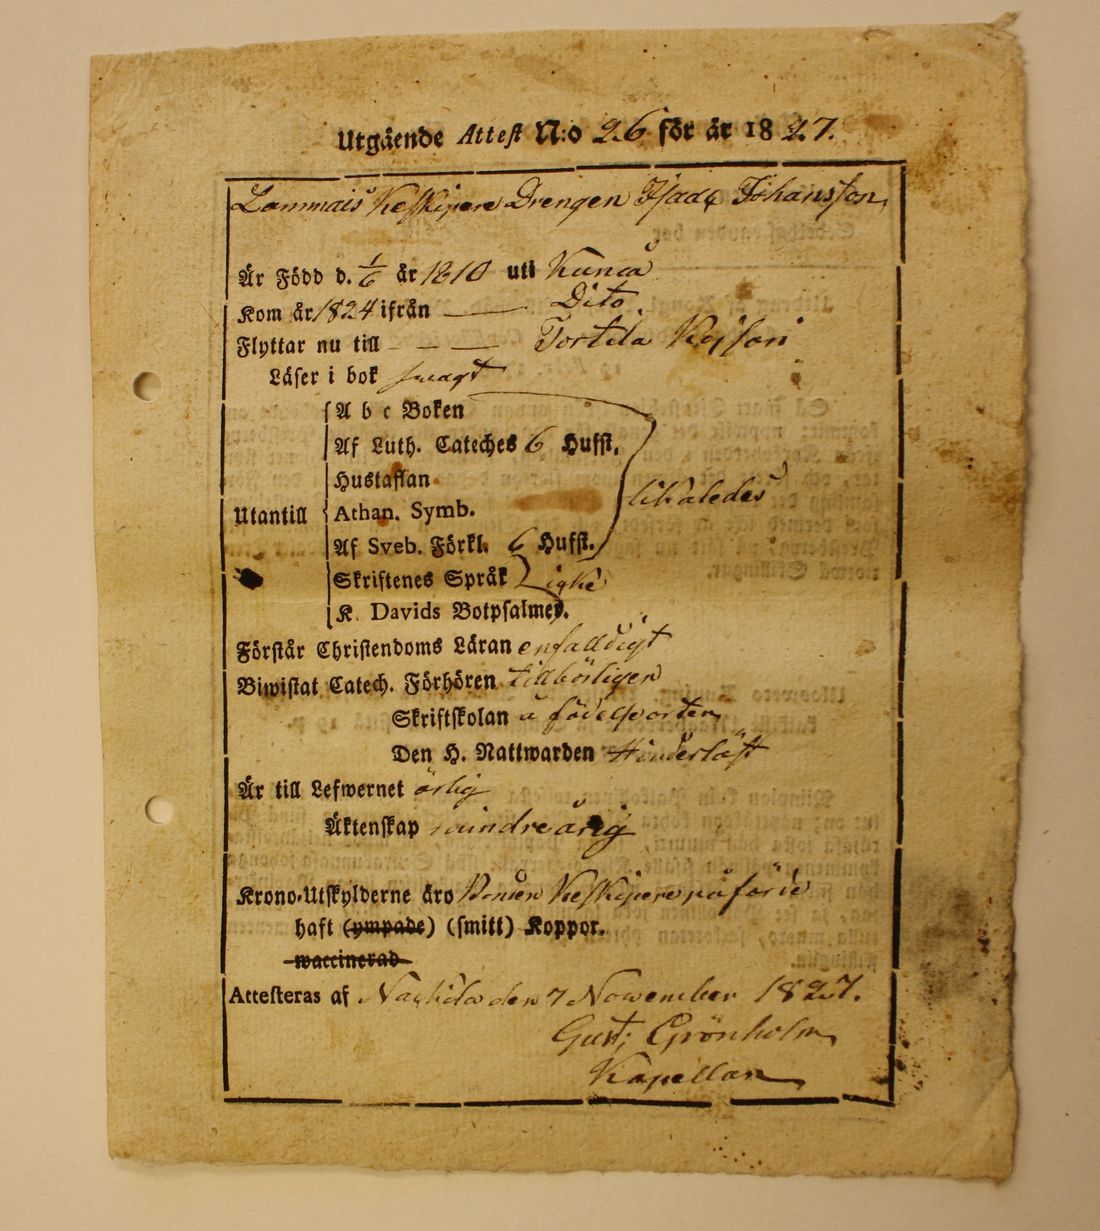 Utgående Attest N:o 26 för år 1827.
Lammais Keskipere Drengen Isaac Johansson
Är Född d. 1/6 år 1810 uti
Kom år 1824 ifrån — Dito
Flyttar nu till — — — Tortila
Läser i bok swagt
Utantill
A b c Boken
Af Luth. Cateches 6 Hufst.
Hustaflan
Athan. Symb.
Af Sveb. Förkl. 6 Hufst.
likaledes
Skriftenes Språk
K. Davids Botpsalmer.
Förstår Christendoms Läran enfalldigt
Biwistat Catech. Förhören tillbörligen
Skriftskolan å födelseorten
Den H. Nattwarden Hinderlöst
Är till Lefwernet ärlig
Äktenskap mindreårig
Krono-Utskylderne äro Keskipere påförde
haft (ympade) (smitt) Koppor.
waccinerad
Attesteras af Nackila den 7 November 1827.
Gust: Grönholm
Kapellan